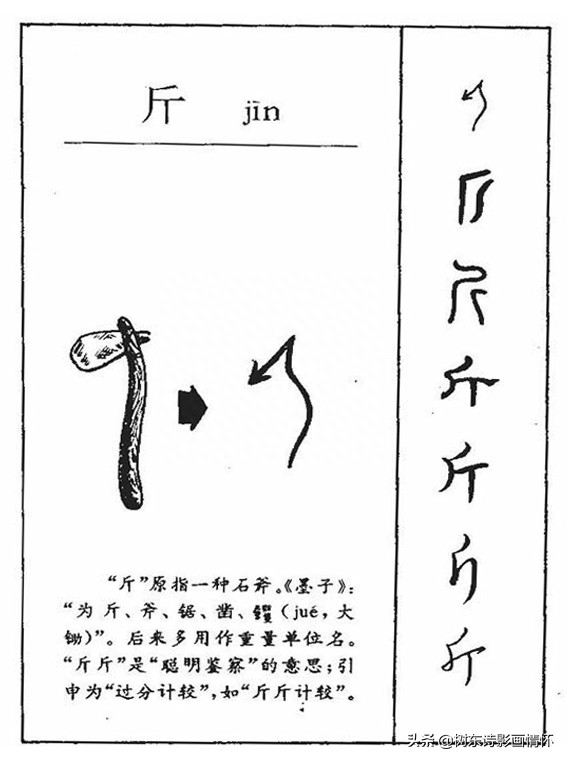 斤 jīn
“斤”原指一种石斧。《墨子》：
“为斤、斧、锯、凿、钁（jué，大
锄）”。后来多用作重量单位名。
“斤斤”是“聪明鉴察”的意思；引
申为“过分计较”，如“斤斤计较”。
头条 @树东诗影画情怀